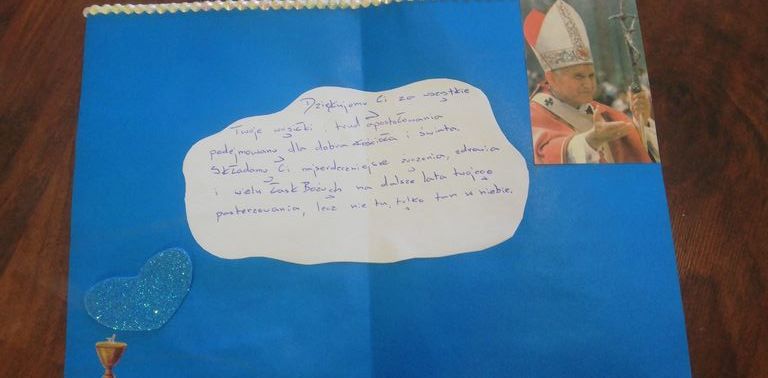 Dziękujemy Ci za wszystkie
Twoje wysiłki i trud apostołowania
podejmowany dla dobra Kościoła i świata.
Składamy Ci najserdeczniejsze życzenia, zdrowia
i wielu Łask Bożych na dalsze lata twojego
pasterzowania, lecz nie tu, tylko tam w niebie.